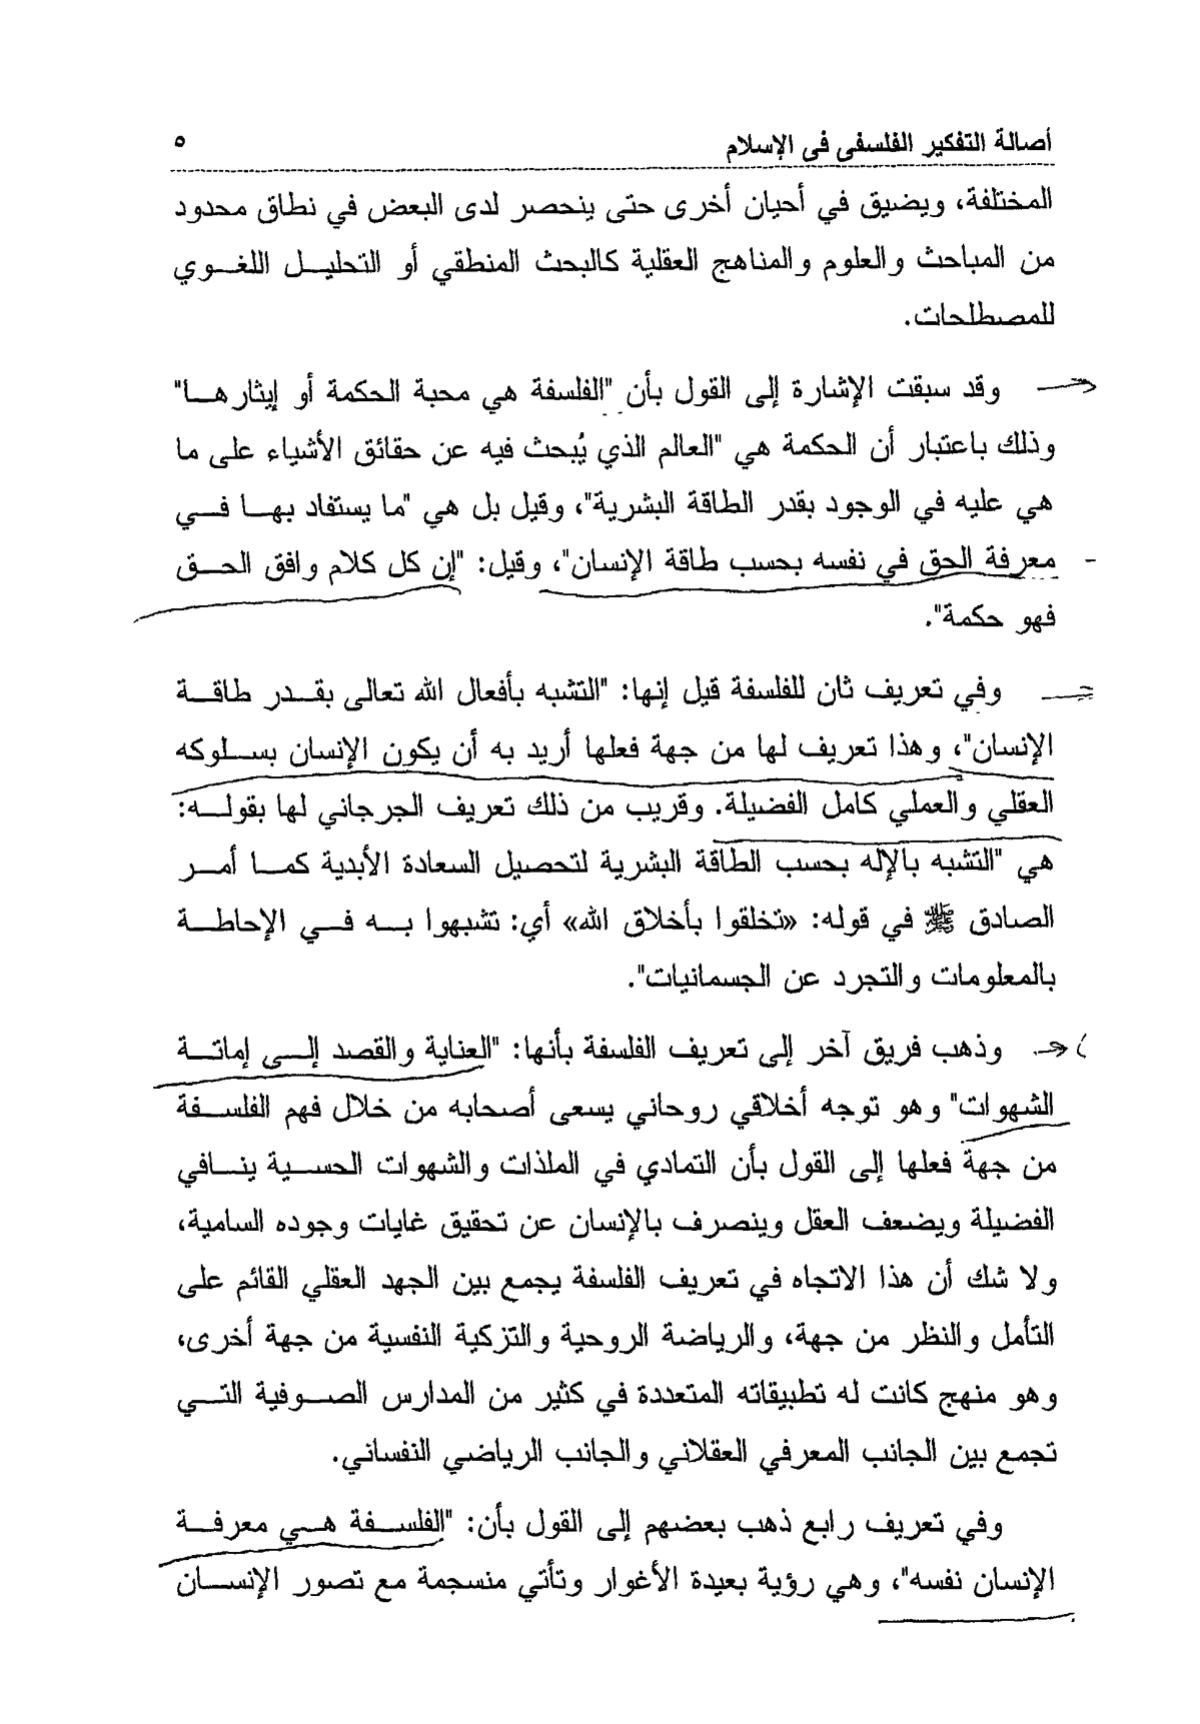 أصالة التفكير الفلسفى فى الإسلام ٥
المختلفة، ويضيق في أحيان أخرى حتى ينحصر لدى البعض في نطاق محدود
من المباحث والعلوم والمناهج العقلية كالبحث المنطقي أو التحليل اللغوي
للمصطلحات.
وقد سبقت الإشارة إلى القول بأن "الفلسفة هي محبة الحكمة أو إيثارها"
وذلك باعتبار أن الحكمة هي "العالم الذي يُبحث فيه عن حقائق الأشياء على ما
هي عليه في الوجود بقدر الطاقة البشرية"، وقيل بل هي "ما يستفاد بها في
معرفة الحق في نفسه بحسب طاقة الإنسان"، وقيل: "إن كل كلام وافق الحق
فهو حكمة".
وفي تعريف ثان للفلسفة قيل إنها: "التشبه بأفعال الله تعالى بقدر طاقة
الإنسان"، وهذا تعريف لها من جهة فعلها أريد به أن يكون الإنسان بسلوكه
العقلي والعملي كامل الفضيلة. وقريب من ذلك تعريف الجرجاني لها بقوله:
هي "التشبه بالإله بحسب الطاقة البشرية لتحصيل السعادة الأبدية كما أمر
الصادق ﷺ في قوله: «تخلقوا بأخلاق الله» أي: تشبهوا به في الإحاطة
بالمعلومات والتجرد عن الجسمانيات".
وذهب فريق آخر إلى تعريف الفلسفة بأنها: "العناية والقصد إلى إماتة
الشهوات" وهو توجه أخلاقي روحاني يسعى أصحابه من خلال فهم الفلسفة
من جهة فعلها إلى القول بأن التمادي في الملذات والشهوات الحسية ينافي
الفضيلة ويضعف العقل وينصرف بالإنسان عن تحقيق غايات وجوده السامية،
ولا شك أن هذا الاتجاه في تعريف الفلسفة يجمع بين الجهد العقلي القائم على
التأمل والنظر من جهة، والرياضة الروحية والتزكية النفسية من جهة أخرى،
وهو منهج كانت له تطبيقاته المتعددة في كثير من المدارس الصوفية التي
تجمع بين الجانب المعرفي العقلاني والجانب الرياضي النفساني.
وفي تعريف رابع ذهب بعضهم إلى القول بأن: "الفلسفة هي معرفة
الإنسان نفسه"، وهي رؤية بعيدة الأغوار وتأتي منسجمة مع تصور الإنسان